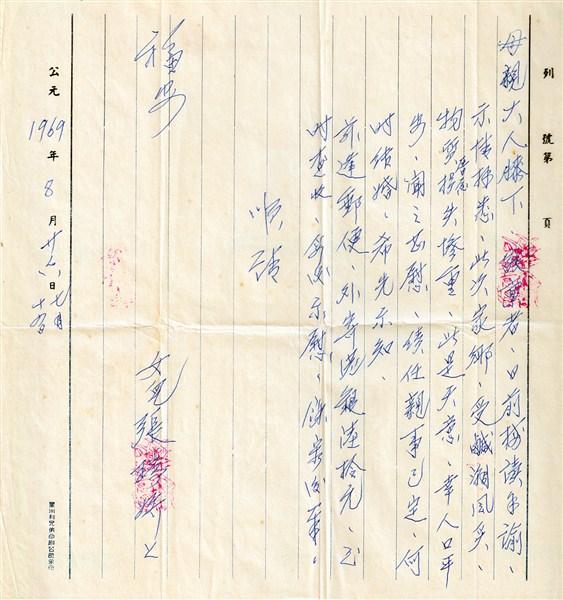 列 號第 頁
母親大人膝下 敬稟者、日前接讀手諭、
示情拜悉、此次家鄉、受鹹潮風災、
物質損失慘重、此是天意、幸人口平
安、聞之甚慰、績任親事已定、何
时结婚、希先示知、
茲逢郵便、外寄港銀陸拾元、到
时查收、安好示慰、餘容後稟、
順請
福安
女兒張 上
公元1969年8月廿六日七月十四